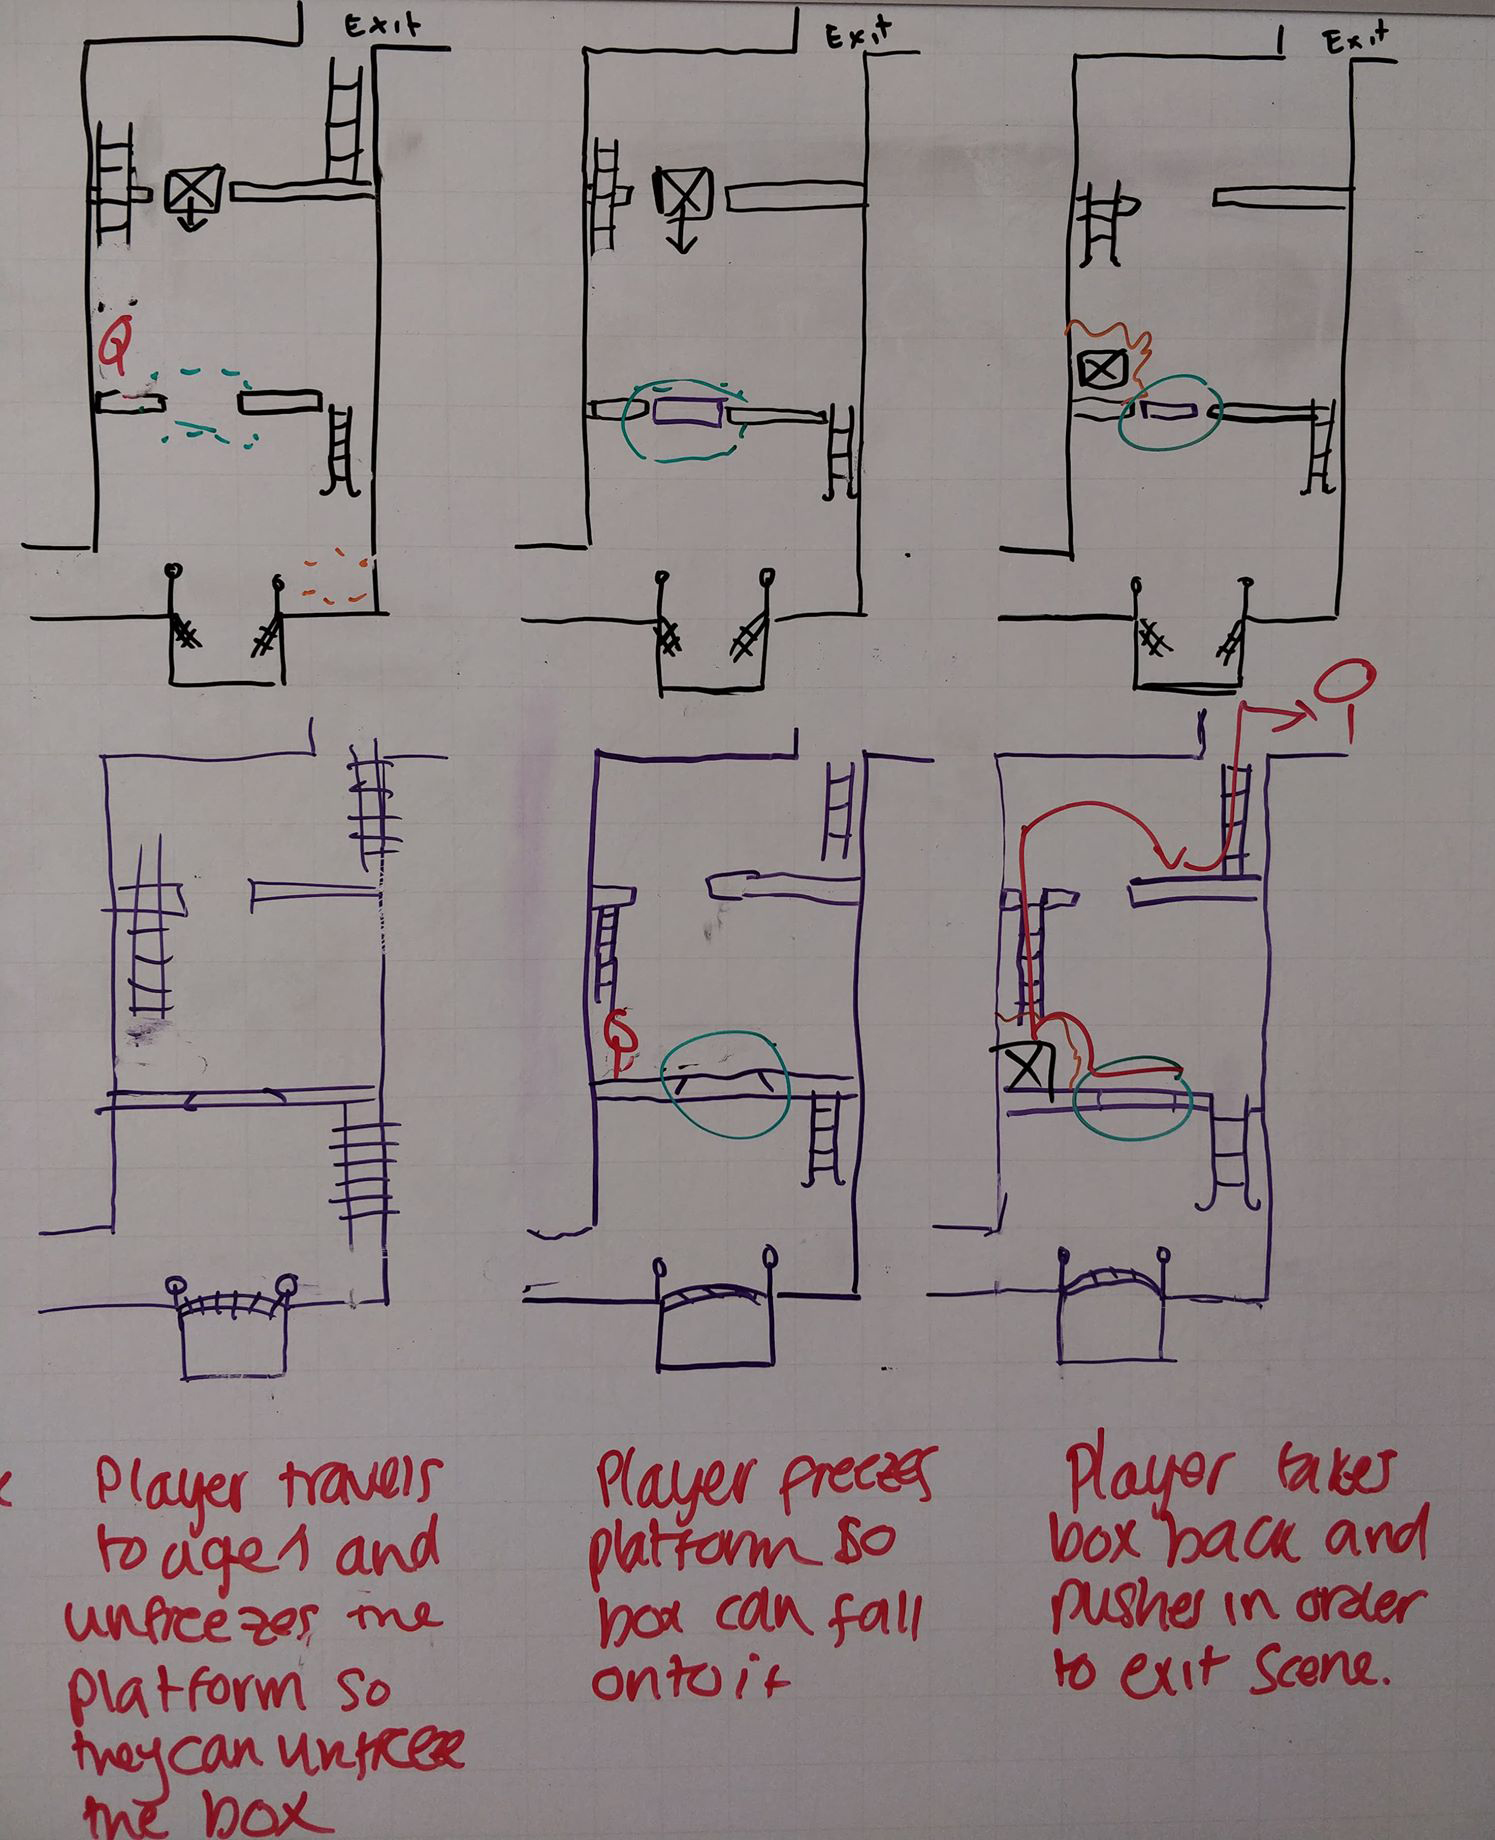 Exit
Exit
Exit
Player travels
to age 1 and
unfreezes the
platform so
they can unfreeze
the box
Player freezes
platform so
box can fall
onto it
Player takes
box back and
pushes in order
to exit scene.